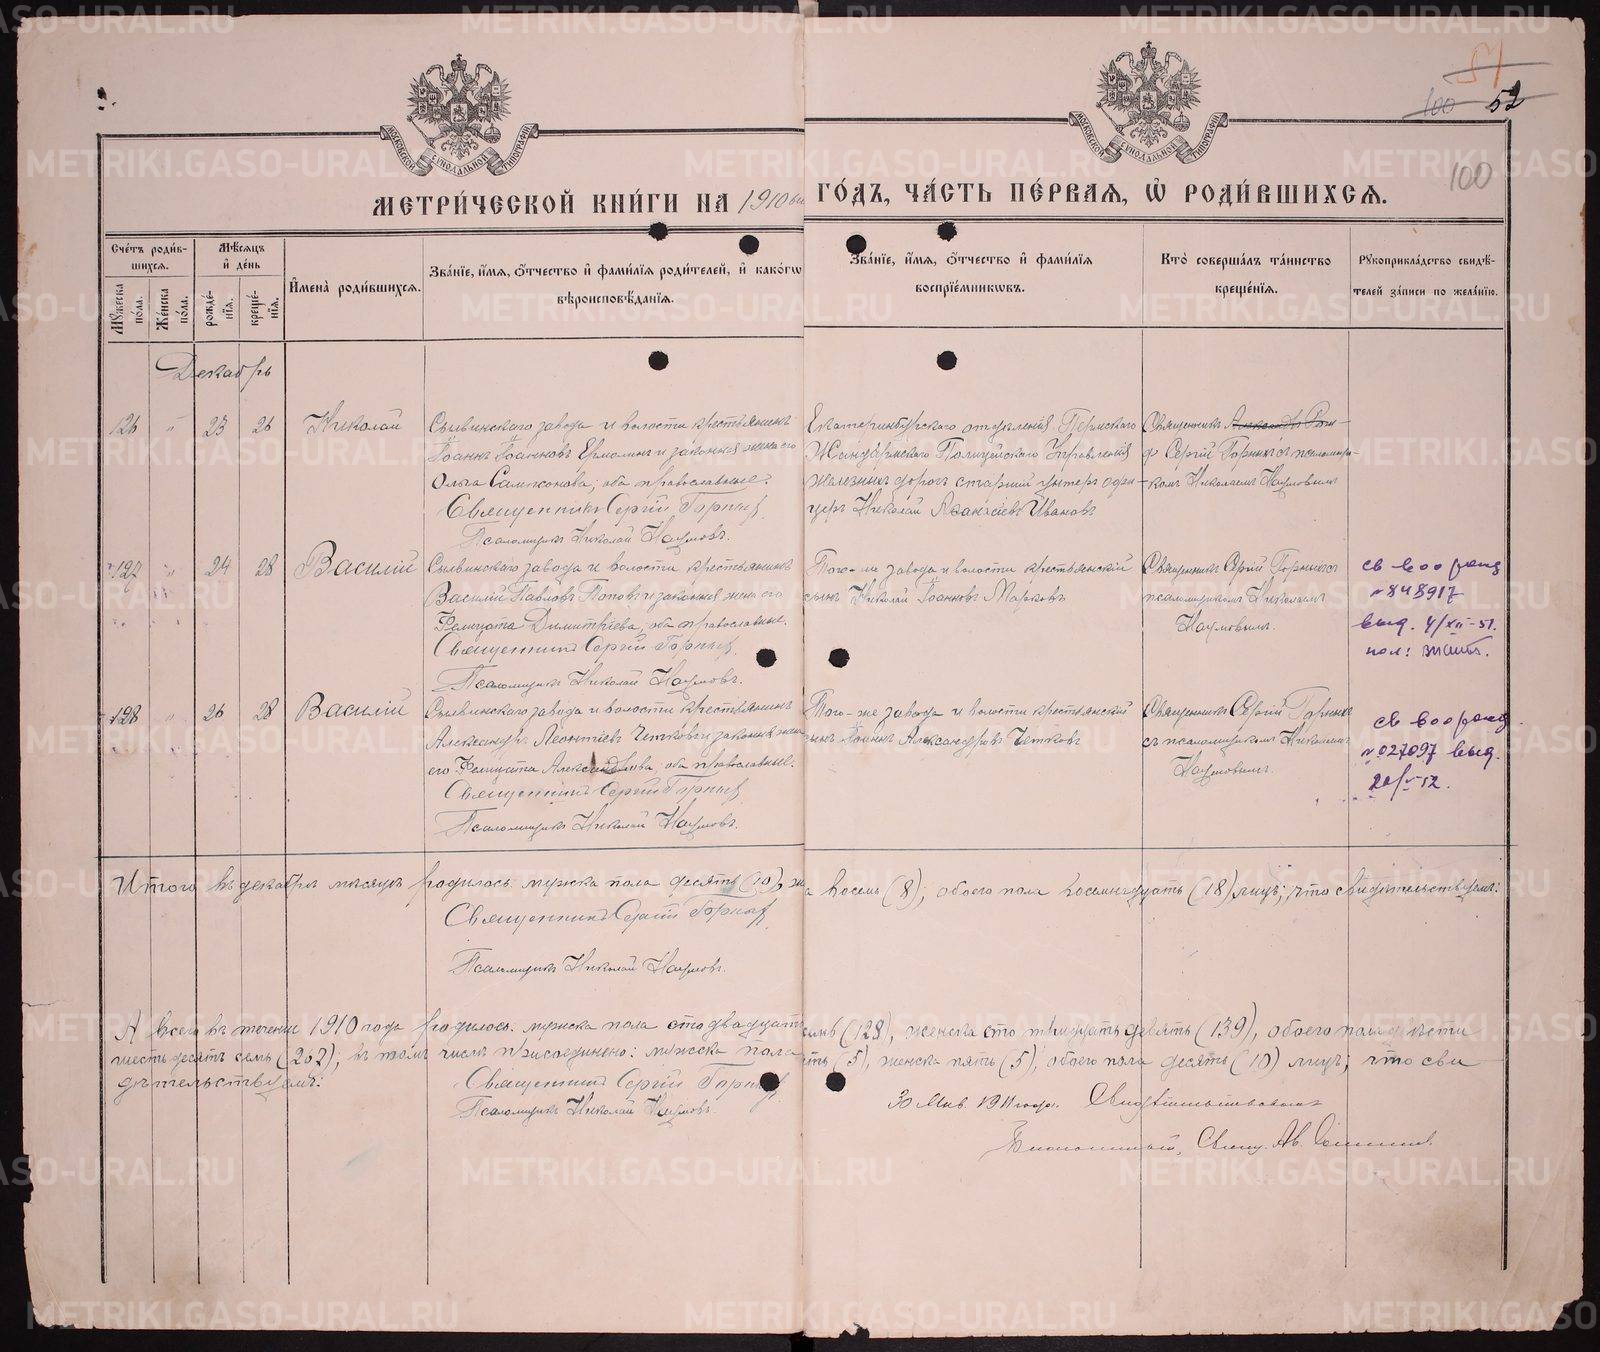 51
100 52
100
МОСКОВСКОЙ СѴНОДАЛЬНОЙ ТИПОГРАФІИ
МОСКОВСКОЙ СѴНОДАЛЬНОЙ ТИПОГРАФІИ
МЕТРИ́ЧЕСКОЙ КНИ́ГИ НА 1910 ый ГО́ДЪ, ЧА́СТЬ ПЕ́РВАЯ, Ѡ РОДИ́ВШИХСЯ.
Сче́тъ роди́в-
шихся.
Мѣ́сяцъ
и де́нь
Мꙋ́жеска по́ла.
Же́нска по́ла.
рожде́-нїя.
креще́-нїя.
Имена̀ роди́вшихся.
Зва́нїе, и́мя, о́тчество и фами́лїя роди́телей, и како́гѡ
вѣроисповѣ́данїя.
Зва́нїе, и́мя, о́тчество и фами́лїя
воспрїе́мникѡвъ.
Кто̀ соверша́лъ та́инство
креще́нїя.
Рꙋкоприкла́дство свидѣ́-
телей за́писи по жела́нїю.
Декабрь
126 " 23 26 Николай
Сылвинскаго завода и волости крестьянинъ
Іоаннъ Іоанновъ Ермолинъ и законная жена его
Ольга Сампсонова, оба православные.
Священникъ Сергій Горныхъ
Псаломщикъ Николай Наумовъ.
Екатеринбургскаго отдѣленія Пермскаго
Жандармскаго Полицейскаго Управленія
железныхъ дорогъ старшій унтеръ офи-
церъ Николай Аѳанасіевъ Ивановъ
Священникъ
Сергій Горныхъ съ псаломщи-
комъ Николаемъ Наумовымъ
127 " 24 28 Василій
Сылвинскаго завода и волости крестьянинъ
Василій Павловъ Поповъ и законная жена его
Фелицата Димитріева, оба православные.
Священникъ Сергій Горныхъ
Псаломщикъ Николай Наумовъ.
Того-же завода и волости крестьянскій
сынъ Николай Іоанновъ Марковъ
Священникъ Сергій Горныхъ съ
псаломщикомъ Николаемъ
Наумовымъ.
св во о рожд
№ 848917
выд. 4/XII-51.
128 " 26 28 Василій
Сылвинскаго завода и волости крестьянинъ
Александръ Леонтіевъ Четковъ и законная жена
его Фелицата Александрова, оба православные.
Священникъ Сергій Горныхъ
Псаломщикъ Николай Наумовъ.
Того-же завода и волости крестьянскій
сынъ Іоаннъ Александровъ Четковъ
Священникъ Сергій Горныхъ
съ псаломщикомъ Николаемъ
Наумовымъ.
св во о рожд
№ 027097 выд.
Итого въ декабрѣ мѣсяцѣ родилось: мужска пола десять (10), женска восемь (8); обоего пола восемнадцать (18) лицъ; что свидѣтельствуемъ:
Священникъ Сергій Горныхъ
Псаломщикъ Николай Наумовъ.
А всего въ теченіи 1910 года родилось: мужска пола сто двадцать восемь (128), женска сто тридцать девять (139), обоего пола двѣсти
шестьдесятъ семь (267); въ томъ числѣ присоединено: мужска пола пять (5), женска пять (5), обоего пола десять (10) лицъ; что сви
дѣтельствуемъ:
Священникъ Сергій Горныхъ
Псаломщикъ Николай Наумовъ.
30 Янв. 1911 года. Свидѣтельствовалъ
METRIKI.GASO-URAL.RU